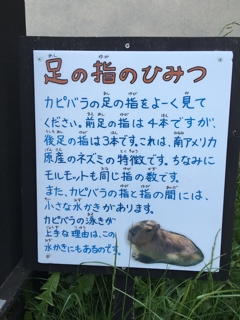 足の指のひみつ
カピバラの足の指をよーく見て
ください。前足の指は4本ですが、
後足の指は3本です。これは、南アメリカ
原産のネズミの特徴です。ちなみに
モルモットも同じ指の数です。
また、カピバラの指と指の間には、
小さな水かきがあります。
カピバラの泳ぎが
上手な理由は、この
水かきにもあるのです。